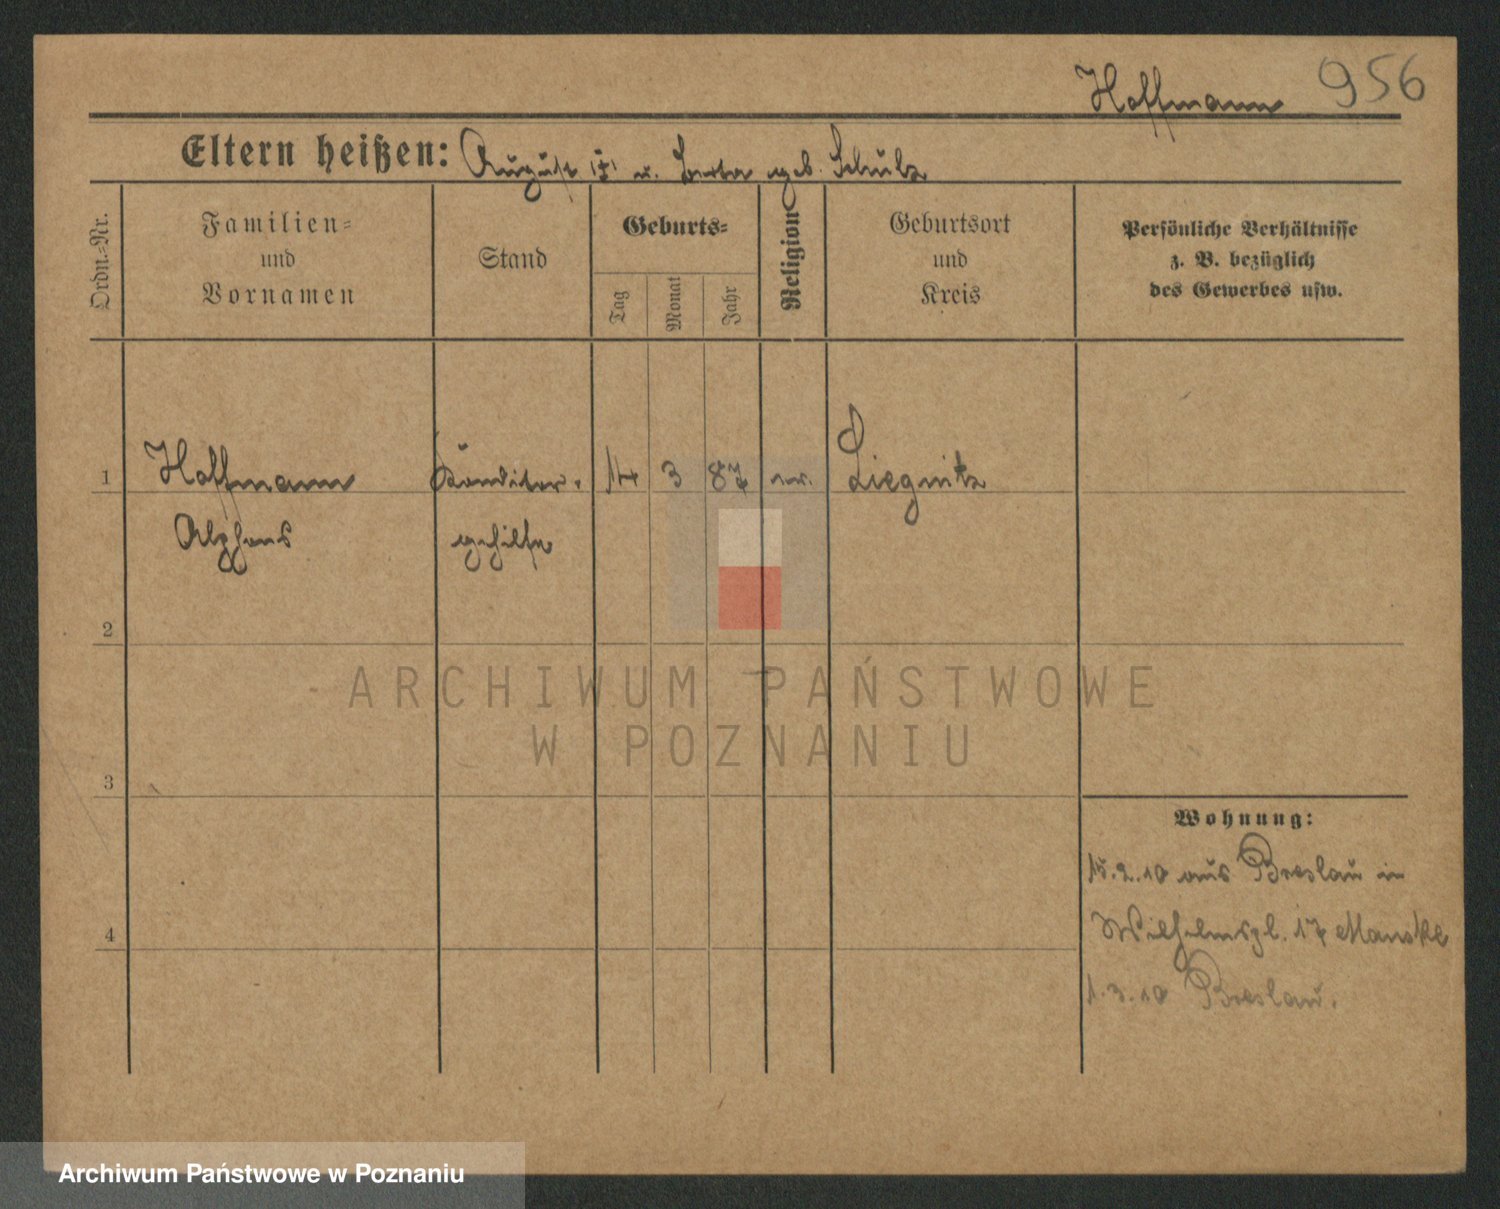 Hoffmann 956
Eltern heißen: August u. geb. Schulz
Ordn.-Nr.
Familien-
und
Vornamen
Stand
Geburts-
Tag
Monat
Jahr
Religion
Geburtsort
und
Kreis
Persönliche Verhältnisse
z. B. bezüglich
des Gewerbes usw.
1 Hoffmann Konditor- 14 3 87 ev. Liegnitz
Alphons gehilfe
2
3
4
Wohnung:
15.2.10 aus Breslau in
Wilhelmspl. 17 Manske
1.3.10 Breslau.
ARCHIWUM PAŃSTWOWE
W POZNANIU
Archiwum Państwowe w Poznaniu